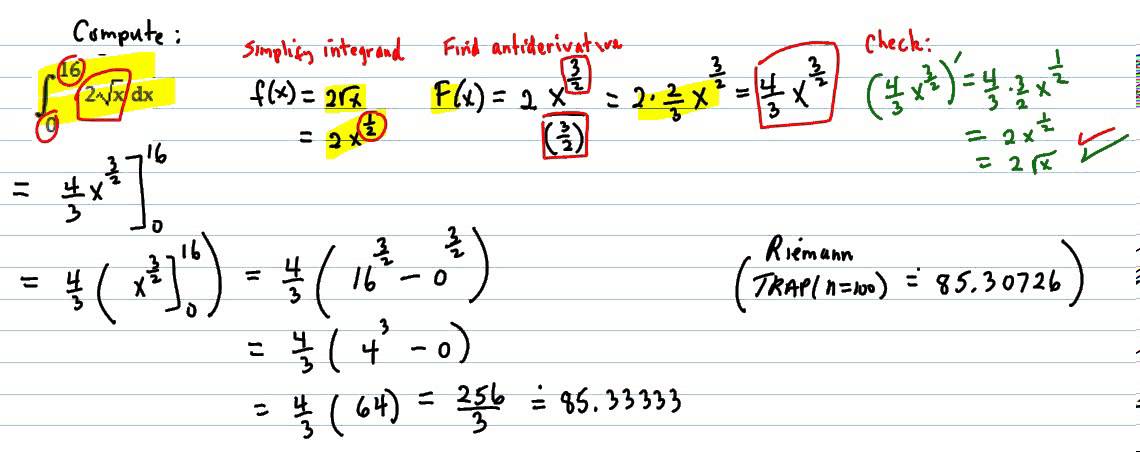 Compute:
∫₀¹⁶ 2√x dx
Simplify integrand
f(x) = 2√x
= 2x^(1/2)
Find antiderivative
F(x) = 2 x^(3/2) / (3/2) = 2·2/3 x^(3/2) = 4/3 x^(3/2)
Check:
(4/3 x^(3/2))' = 4/3·3/2 x^(1/2)
= 2x^(1/2)
= 2√x ✓✓
= 4/3 x^(3/2) ]₀¹⁶
= 4/3 ( x^(3/2) ]₀¹⁶ ) = 4/3 ( 16^(3/2) − 0^(3/2) )
= 4/3 ( 4³ − 0 )
= 4/3 ( 64 ) = 256/3 ≐ 85.33333
( Riemann
TRAP(n=100) ≐ 85.30726 )